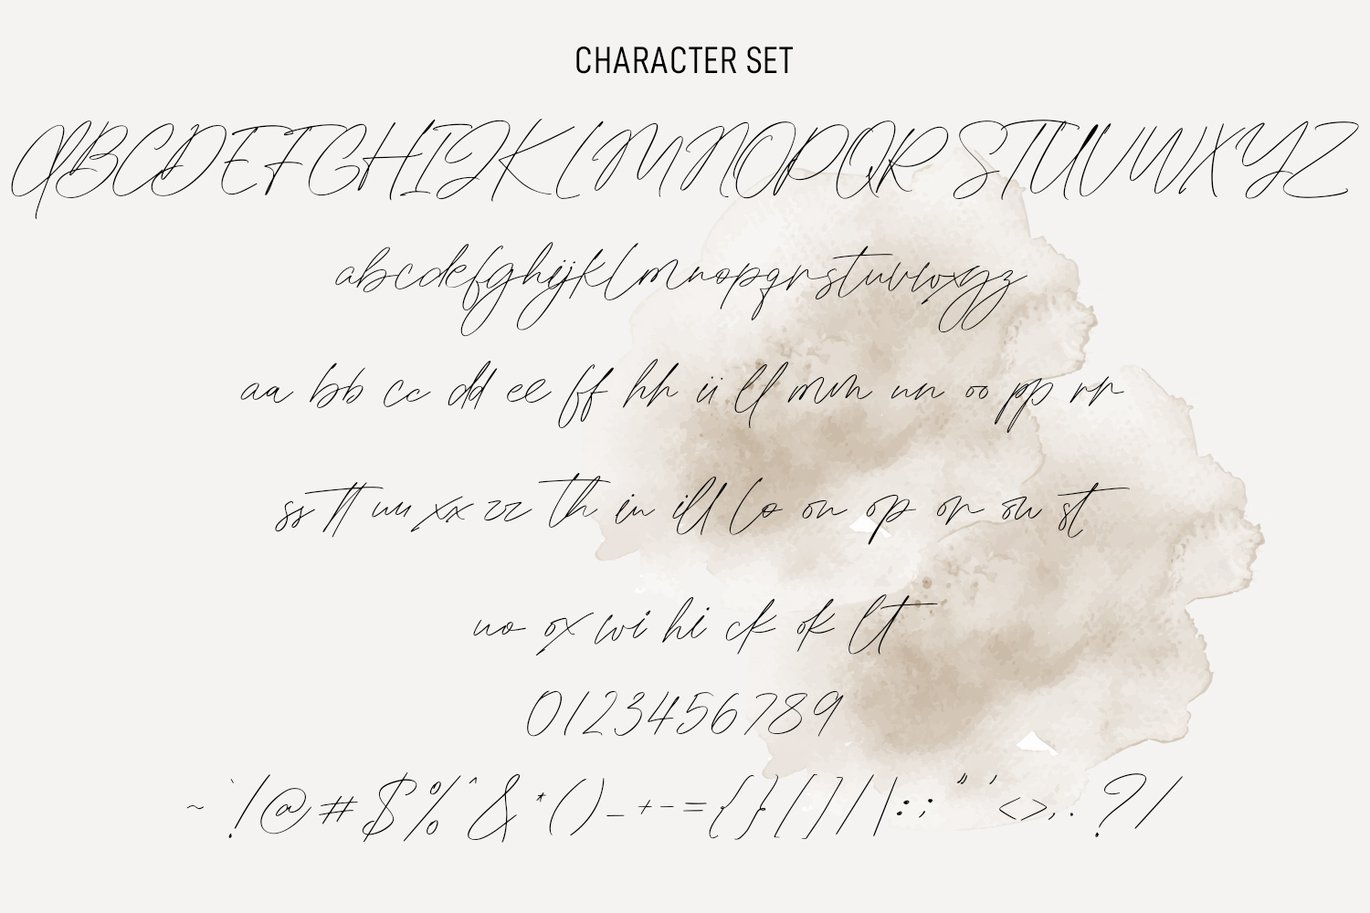 CHARACTER SET
ABCDEFGHIJKLMNOPQRSTUVWXYZ
abcdefghijklmnopqrstuvwxyz
aa bb cc dd ee ff hh ii ll mm nn oo pp rr
ss tt uu xx zz th in ill lo on op or ou st
uo ox wi hi ck ok lt
0123456789
~ ` ! @ # $ % ^ & * ( ) _ + - = { } [ ] / | : ; " ' < > , . ? /